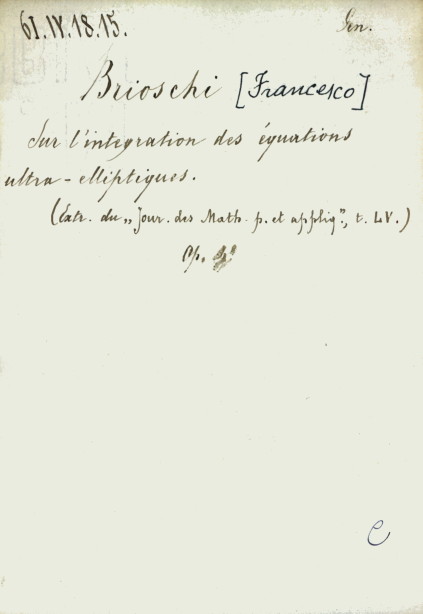 61.IV.18.15. Gen.
Brioschi [Francesco]
Sur l'integration des équations
ultra-elliptiques.
(Extr. du „Jour. des Math. p. et appliq", t. LV.)
C